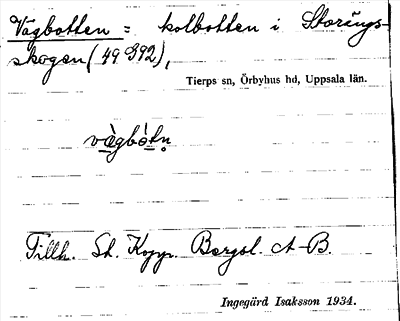 Vägbotten = kolbotten i Storängs-
skogen (49 392),
Tierps sn, Örbyhus hd, Uppsala län.
vä̀gbò̀tn̥
Tillh. St. Kopp. Bergsl. A-B.
Ingegärd Isaksson 1934.